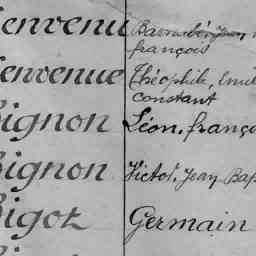 envenu Barnabé, Jean,
françois
envenue Théophile, Emile
constant
Bignon Léon, franço
Bignon Victor, Jean Bap
Bigot Germain